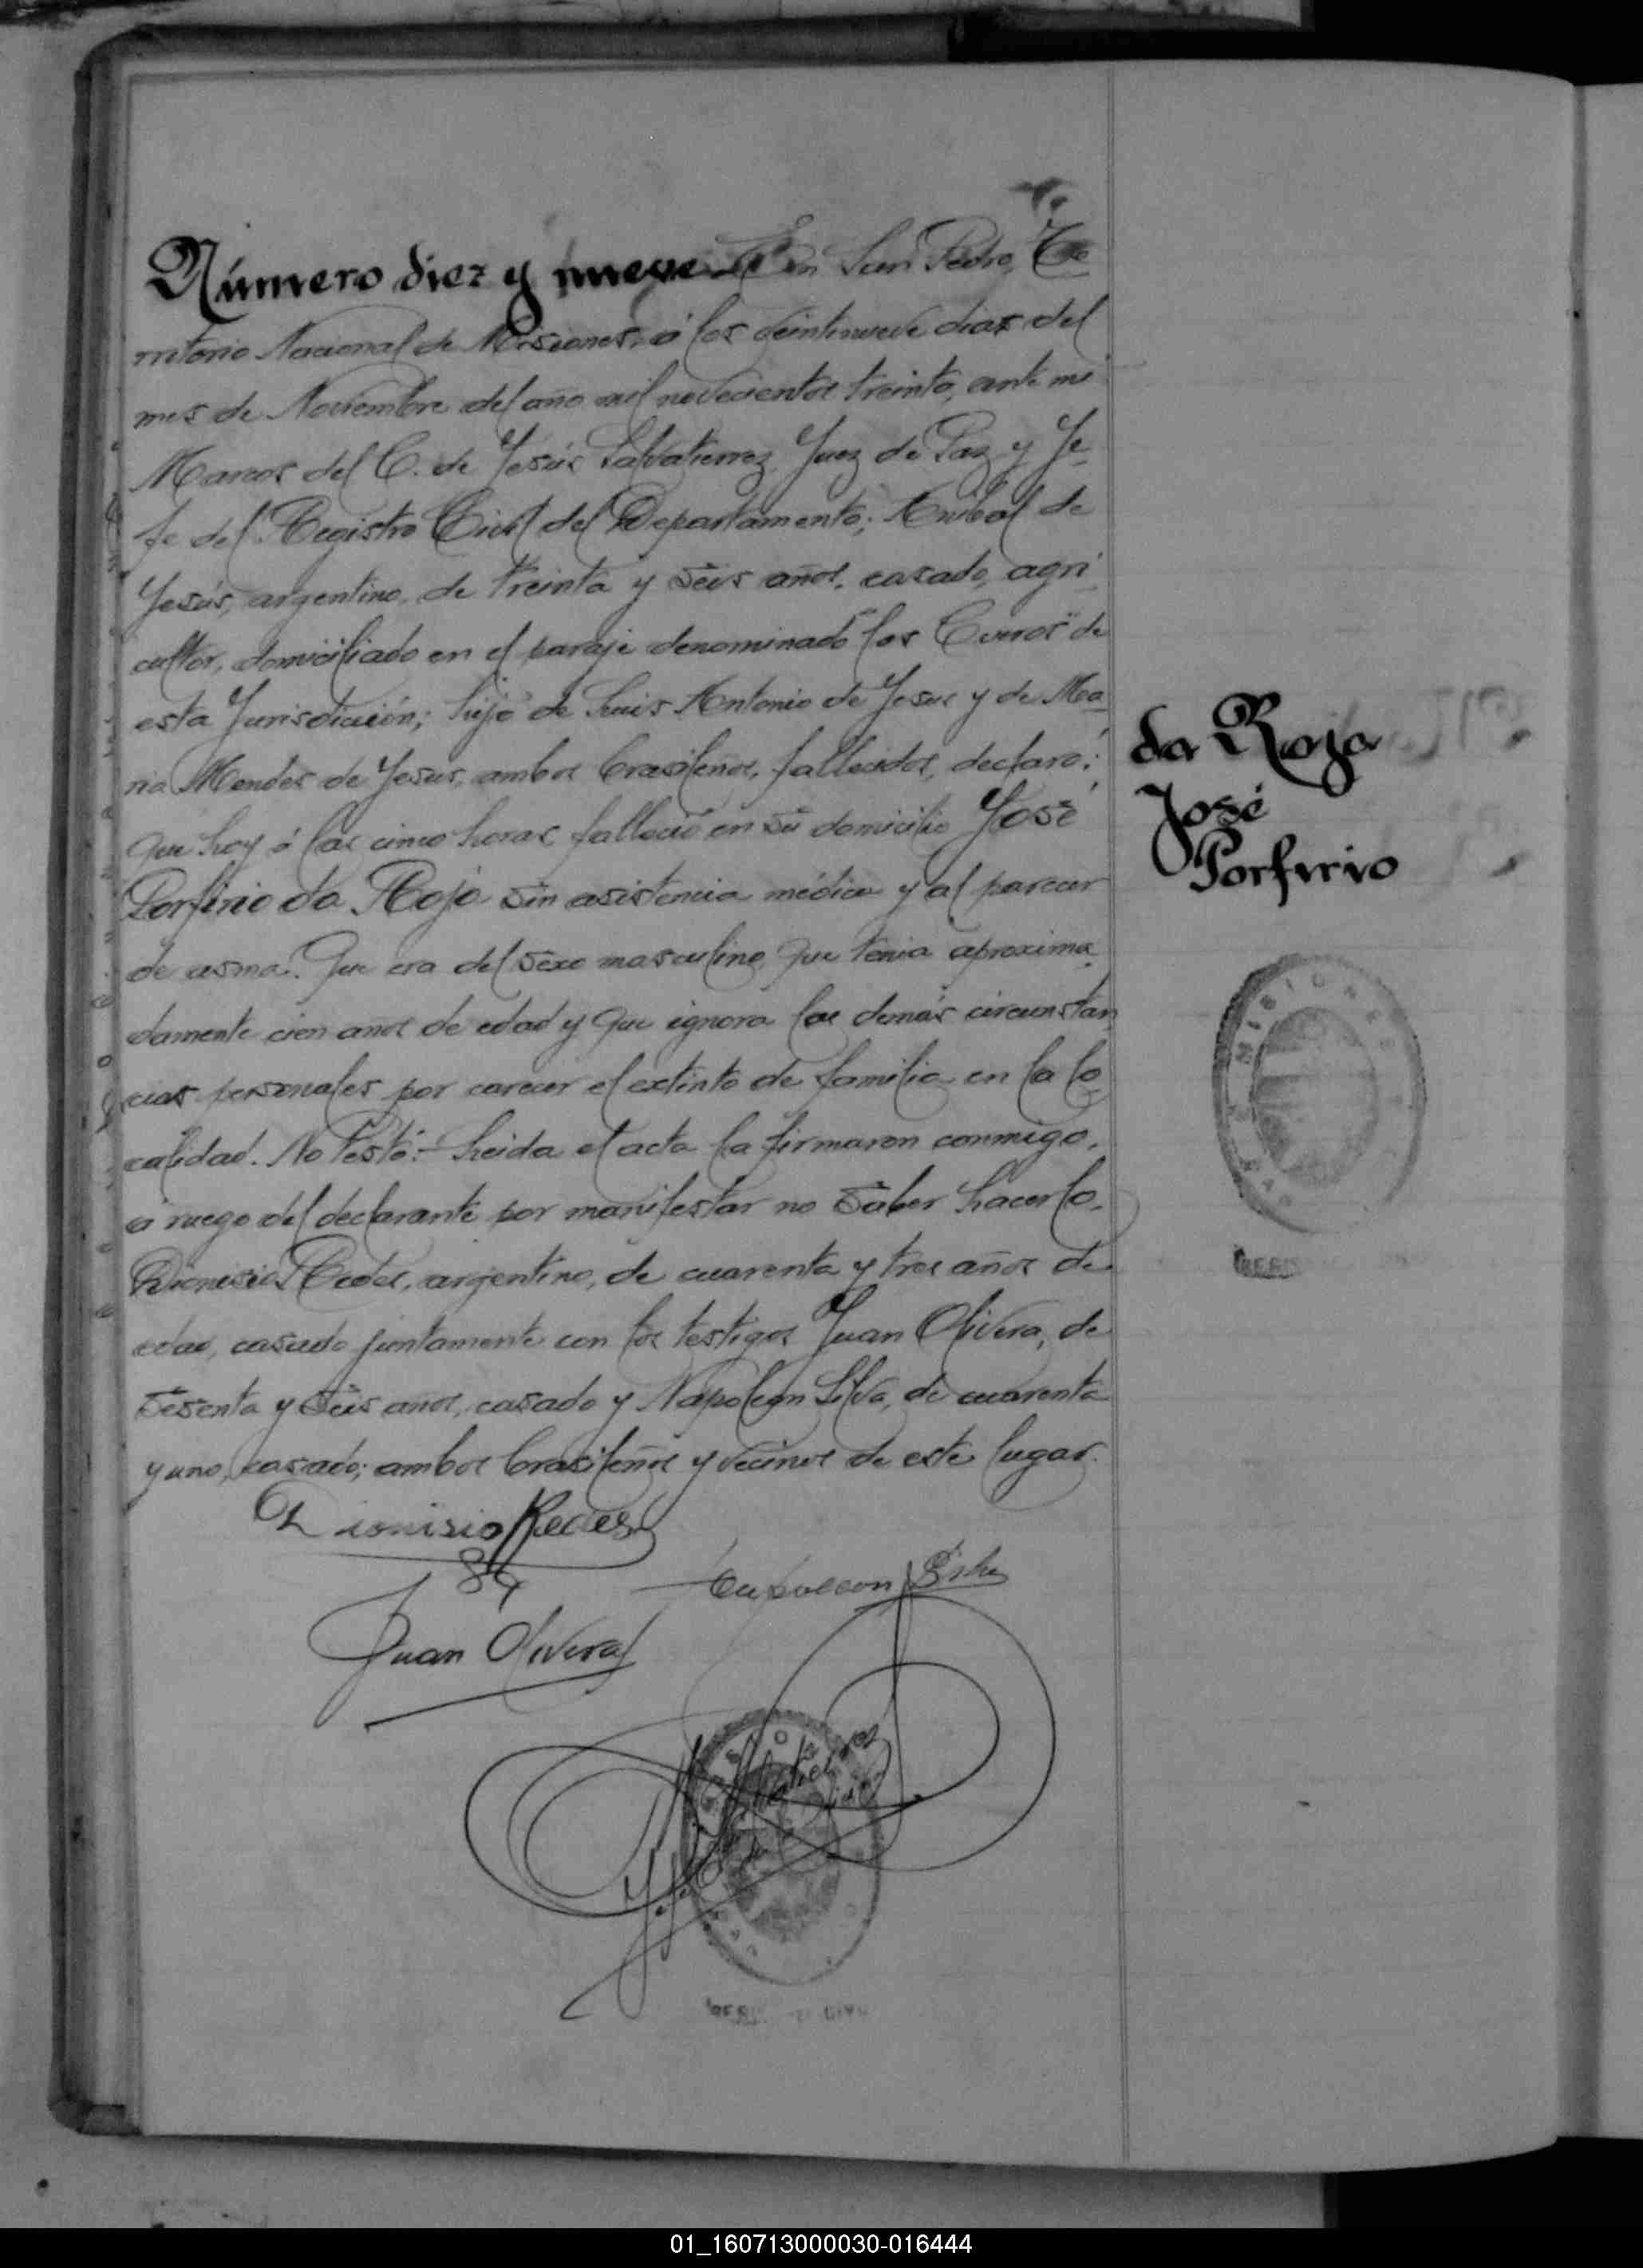 Número diez y nueve En San Pedro, Te
rritorio Nacional de Misiones, á los veintinueve dias del
mes de Noviembre del año mil novecientos treinta, ante mi
Marcos del C. de Jesús Salvatierrez, Juez de Paz y Je-
fe del Registro Civil del Departamento; Anibal de
Jesús, argentino, de treinta y seis años, casado, agri
cultor, domiciliado en el paraje denominado "los Cueros" de
esta Jurisdicción; hijo de Luis Antonio de Jesus y de Ma
ria Mendes de Jesus, ambos brasileños, fallecidos, declaró:
Que hoy á las cinco horas, falleció en su domicilio José
Porfirio da Roja sin asistencia médica y al parecer
de asma. Que era del sexo masculino, que tenia aproxima
damente cien años de edad y que ignora las demás circunstan
cias personales por carecer el extinto de familia en la lo
calidad. No testó.- Leida el acta la firmaron conmigo,
á ruego del declarante por manifestar no saber hacerlo,
Dionisio Redes, argentino, de cuarenta y tres años de
edad, casado juntamente con los testigos Juan Olivera, de
sesenta y seis años, casado y Napoleon Silva, de cuarenta
y uno, casado; ambos brasileños y vecinos de este lugar.
Dionisio Redes
Napoleon Silva
Juan Olivera
da Roja
José
Porfirio
MISIONES
01_160713000030-016444